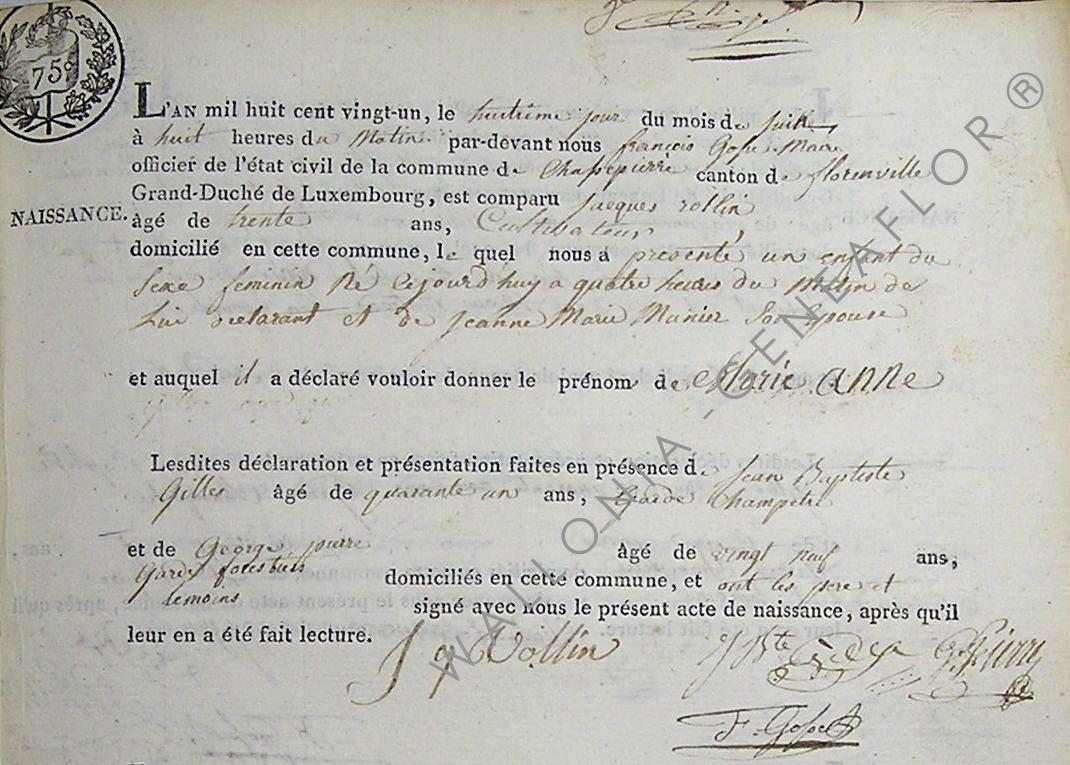 75c
L'AN mil huit cent vingt-un, le huitième jour du mois de juin
à huit heures du Matin par-devant nous françois Gofse Maire
officier de l'état civil de la commune de Chassepierre canton de florenville
Grand-Duché de Luxembourg, est comparu Jacques rollin
NAISSANCE. âgé de trente ans, Cultivateur
domicilié en cette commune, le quel nous a présenté un enfant du
sexe feminin Né cejourd'huy a quatre heures du Matin de
Lui declarant et de Jeanne Marie Manier Son Epouse
et auquel il a déclaré vouloir donner le prénom de Marie Anne
Lesdites déclaration et présentation faites en présence de Jean Baptiste
Gilles âgé de quarante un ans, Garde Champetre
et de George pierre âgé de vingt neuf ans,
Garde forestier domiciliés en cette commune, et ont les pere et
temoins signé avec nous le présent acte de naissance, après qu'il
leur en a été fait lecture.
J q Rollin
F. Gofse
WALLONIA - GENEAFLOR ®